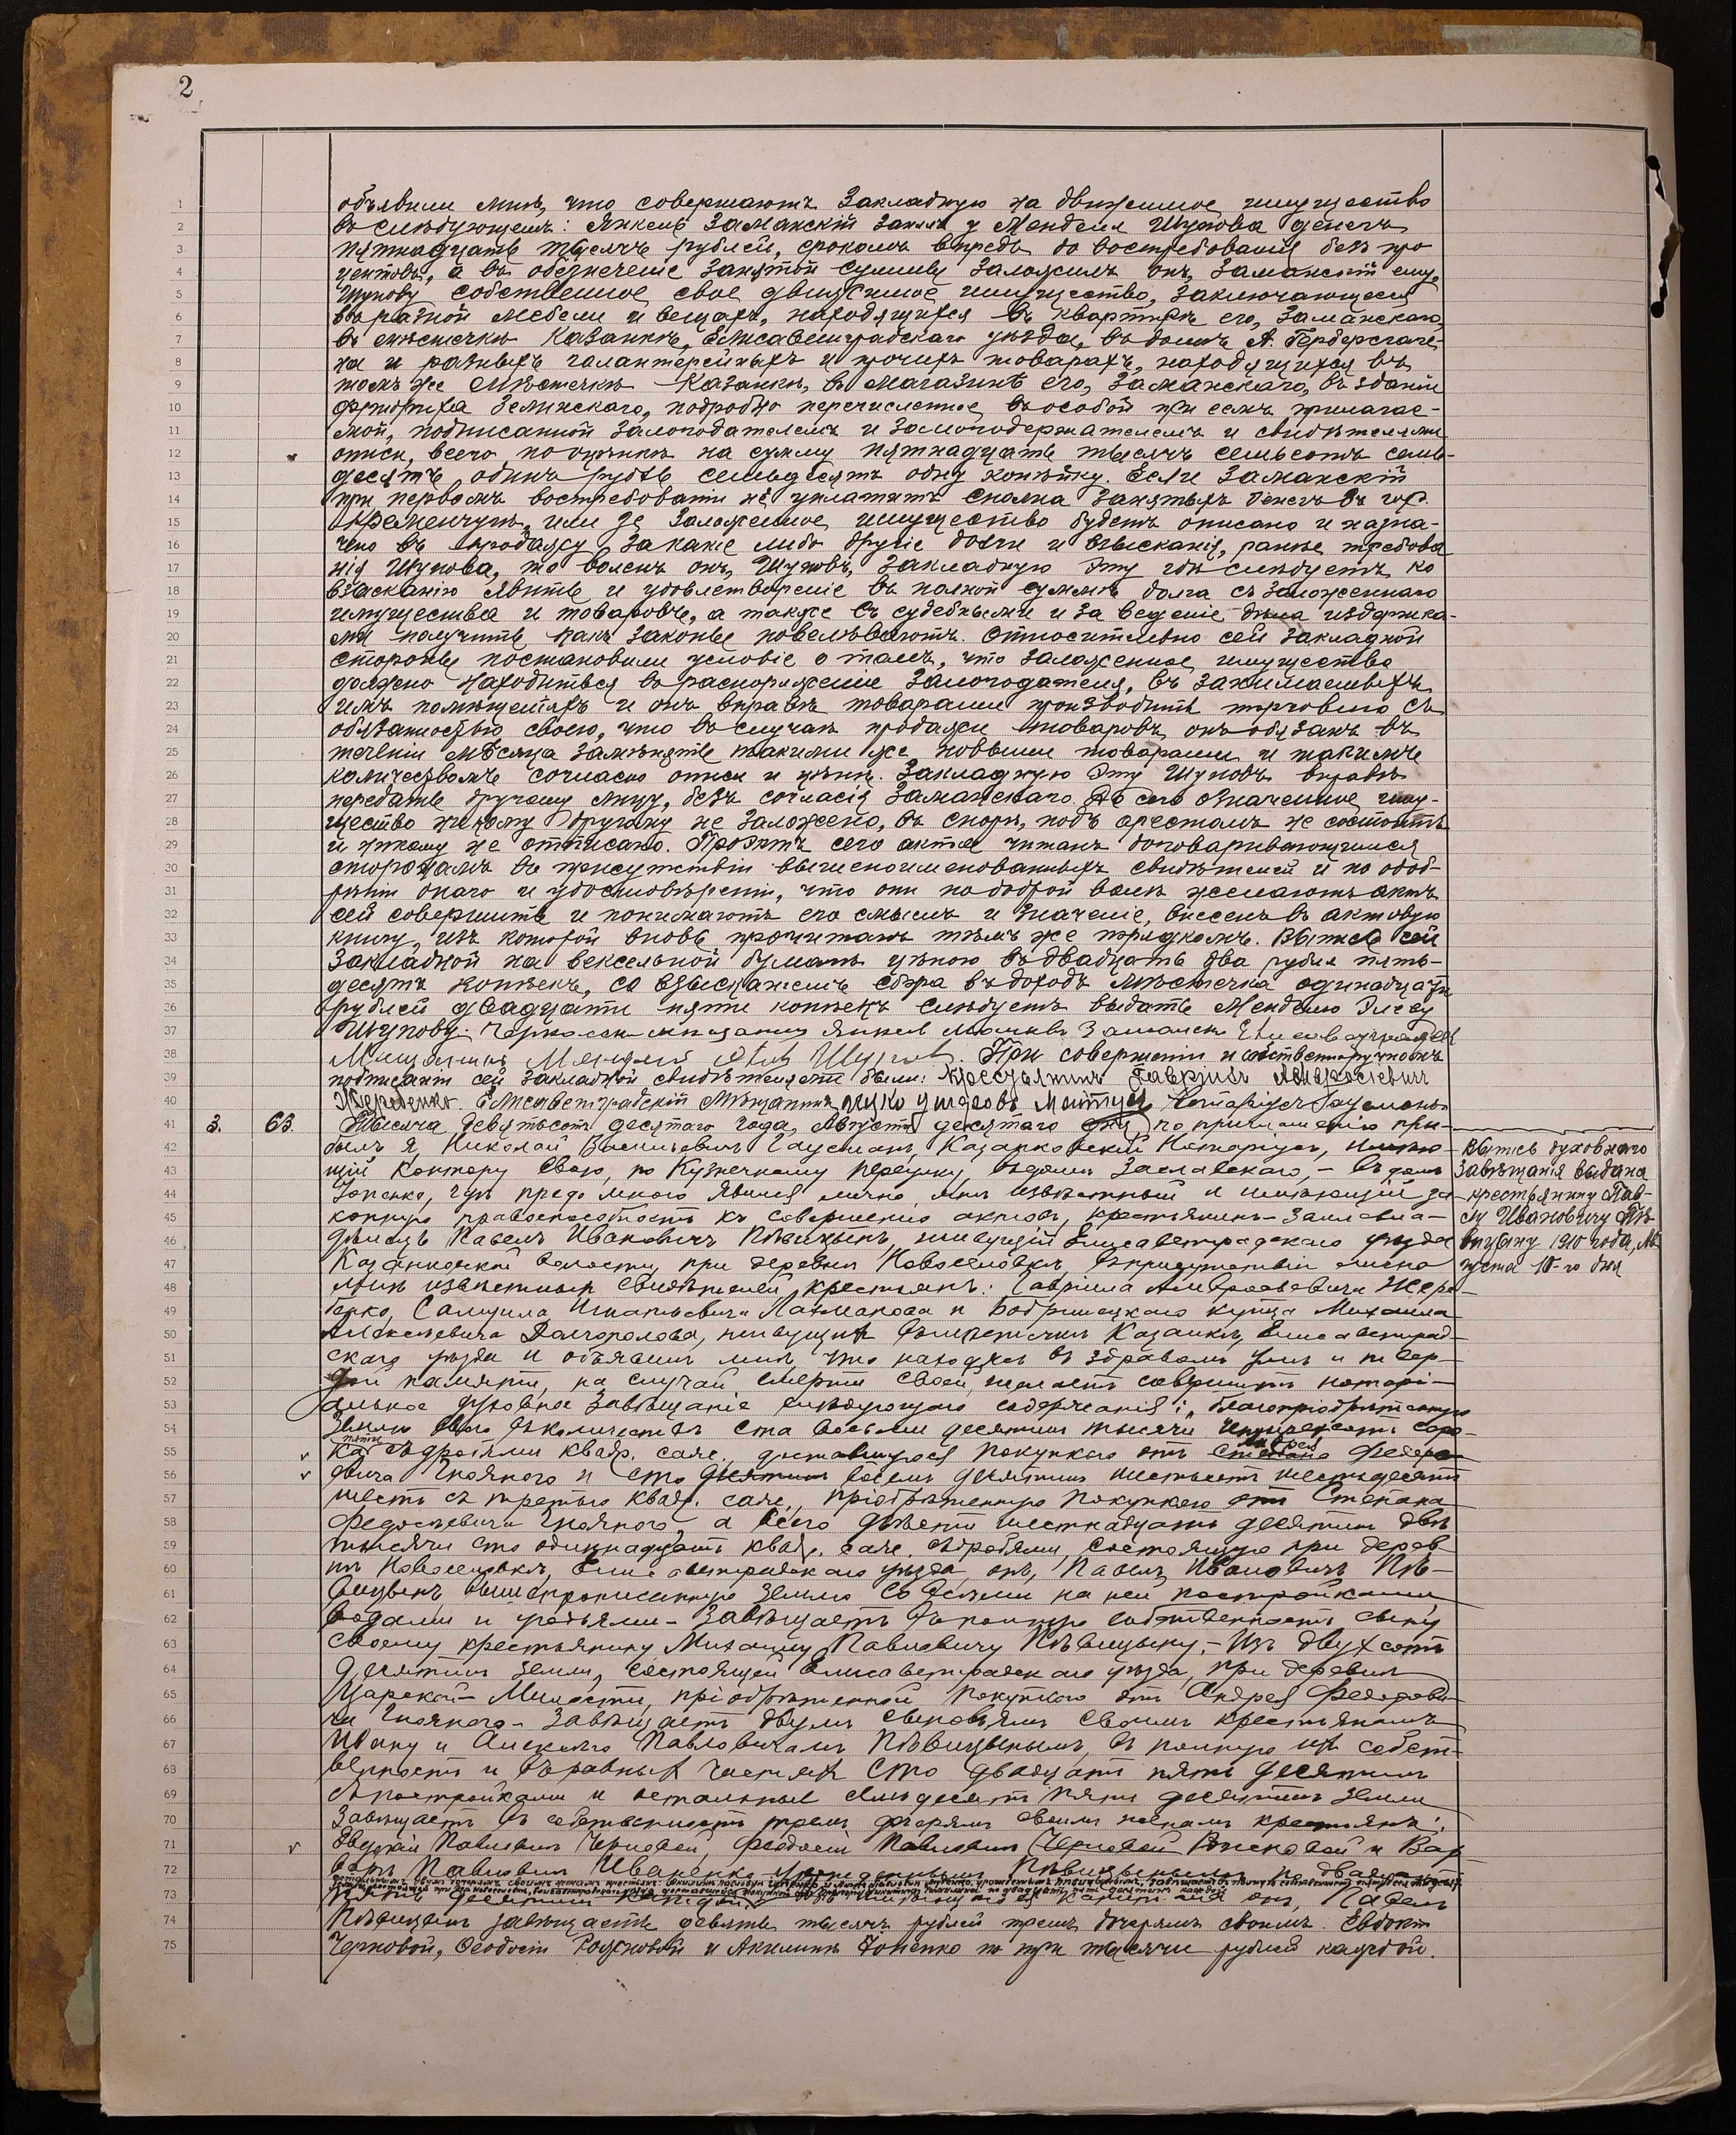 2
1 объявили мнѣ, что совершаютъ закладную на движимое имущество
2 въ слѣдующемъ: Янкель Заманскій занялъ у Менделя Шупова денегъ
3 пятнадцать тысячъ рублей, срокомъ впредь до востребованія безъ про
4 центовъ, а въ обезпеченіе занятой суммы заложилъ онъ, Заманскій ему,
5 Шупову собственное свое движимое имущество, заключающееся
6 въ разной мебели и вещахъ, находящихся въ квартирѣ его, Заманскаго,
7 въ мѣстечкѣ Казанкѣ, Елисаветградскаго уѣзда, въ домѣ А.
8 на и разныхъ галантерейныхъ и прочихъ товарахъ, находящихся въ
9 томъ же мѣстечкѣ Казанкѣ, въ магазинѣ его, Заманскаго, въ зданіи
10 Зелинскаго, подробно перечисленное въ особой при семъ прилагае-
11 мой, подписанной залогодателемъ и залогодержателемъ и свидѣтелями
12 описи, всего по оцѣнкѣ на сумму пятнадцать тысячъ семьсотъ семь-
13 десятъ одинъ рубль семьдесятъ одну копѣйку. Если Заманскій
14 при первомъ востребованіи не уплатитъ сполна занятыхъ денегъ въ гор.
15 Кременчугѣ, или же заложенное имущество будетъ описано и назна-
16 чено въ продажу за какіе либо другіе долги и взысканія, ранѣе требова
17 нія Шупова, то воленъ онъ, Шуповъ, закладную эту гдѣ слѣдуетъ ко
18 взысканію явить и удовлетвореніе въ полной суммѣ долга съ заложеннаго
19 имущества и товаровъ, а также съ судебными и за веденіе дѣла издержка-
20 ми получить какъ законы повелѣваютъ. Относительно сей закладной
21 стороны постановили условіе о томъ, что заложенное имущество
22 должно находиться въ распоряженіи залогодателя, въ занимаемыхъ
23 имъ помѣщеніяхъ и онъ вправѣ товарами производить торговлю съ
24 обязанностью своею, что въ случаѣ продажи товаровъ онъ обязанъ въ
25 теченіи мѣсяца замѣнять такими же новыми товарами и такимъ
26 количествомъ согласно описи и цѣнѣ. Закладную эту Шуповъ вправѣ
27 передать другому лицу, безъ согласія Заманскаго. До сего означенное иму-
28 щество никому другому не заложено, въ спорѣ, подъ арестомъ не состоитъ
29 и никому не отписано. Проэктъ сего акта читанъ договаривающимся
30 сторонамъ въ присутствіи вышепоименованныхъ свидѣтелей и по одоб-
31 реніи онаго и удостовѣреніи, что они по доброй волѣ желаютъ актъ
32 сей совершить и понимаютъ его смыслъ и значеніе, внесенъ въ актовую
33 книгу, изъ которой вновь прочитанъ тѣмъ же порядкомъ. Выпись сей
34 закладной на вексельной бумагѣ цѣною въ двадцать два рубля пять-
35 десятъ копѣекъ, со взысканіемъ сбора въ доходъ мѣстечка одинадцати
36 рублей двадцати пяти копѣекъ слѣдуетъ выдать Менделю Эліеву
37 Шупову. Янкель Заманск Елисаветградск
38 Мѣщанинъ Мендель Шуповъ. При совершеніи и собственноручномъ
39 подписаніи сей закладной свидѣтелями были: Крестьянинъ Гавріилъ Амвросіевичъ
40 Жеребенко. Елисаветградскій Мѣщанинъ Нотаріусъ Гаусманъ
41 3. 63. Тысяча девятьсотъ десятаго года, Августа десятаго дня, по приглашенію при-
42 былъ я, Николай Васильевичъ Гаусманъ, Казанковскій Нотаріусъ, имѣю-
43 щій контору свою, по Кузнечному переулку, въ домѣ Заславскаго, - въ домъ
44 Гопенко, гдѣ предо мною явился лично мнѣ извѣстный и имѣющій за
45 конную правоспособность къ совершенію актовъ, крестьянинъ-землевла-
46 дѣлецъ Павелъ Ивановичъ Пѣвицынъ, живущій Елисаветградскаго уѣзда
47 Казанковской волости, при деревнѣ Новоселовкѣ, въ присутствіи лично
48 мнѣ извѣстныхъ свидѣтелей, крестьянъ: Гавріила Амвросіевича Жере-
49 бенко, Самуила Игнатьевича Лахманова и Бобринецкаго купца Михаила
50 Алексѣевича Долгополова, живущихъ въ мѣстечкѣ Казанкѣ, Елисаветград-
51 скаго уѣзда и объявилъ мнѣ, что находясь въ здравомъ умѣ и твер-
52 дой памяти, на случай смерти своей, желаетъ совершить нотарі-
53 альное духовное завѣщаніе слѣдующаго содержанія: „благопріобрѣтенную
54 землю въ количествѣ ста восьми десятинъ тысячи четырехсотъ соро-
55 ка пяти съ дробями квадр. саж., доставшуюся покупкою отъ Андрея Федоро-
56 вича Гноянаго и сто восемь десятинъ шестьсотъ шестьдесятъ
57 шесть съ третью квадр. саж., пріобрѣтенную покупкою отъ Степана
58 Федосѣевича Гноянаго, а всего двѣсти шестнадцать десятинъ двѣ
59 тысячи сто одиннадцать квадр. саж. съ дробями, состоящую при дерев-
60 нѣ Новоселовкѣ, Елисаветградскаго уѣзда, онъ, Павелъ Ивановичъ Пѣ-
61 вицынъ, вышеописанную землю со всѣми на ней постройками,
62 водами и угодьями - завѣщаетъ въ полную собственность сыну
63 своему крестьянину Михаилу Павловичу Пѣвицыну. - Изъ двухсотъ
64 десятинъ земли, состоящей Елисаветградскаго уѣзда, при деревнѣ
65 Царской-Милости, пріобрѣтенной покупкою отъ Андрея Федорови-
66 ча Гноянаго - завѣщаетъ двумъ сыновьямъ своимъ крестьянамъ
67 Ивану и Алексѣю Павловичамъ Пѣвицынымъ, въ полную ихъ собст-
68 венность и въ равныхъ частяхъ сто двадцать пять десятинъ
69 съ постройками и остальные семьдесятъ пять десятинъ земли
70 завѣщаетъ въ собственность тремъ дочерямъ своимъ женамъ крестьянъ:
71 Евдокіи Павловнѣ Черновой, Феодосіи Павловнѣ Рожновой и Вар-
72 варѣ Павловнѣ Иваненко урожденнымъ Пѣвицынымъ по двадцати
73 пяти десятинъ каждой. онъ, Павелъ
74 Пѣвицынъ завѣщаетъ девять тысячъ рублей тремъ дочерямъ своимъ: Евдокіи
75 Черновой, Ѳеодосіи Рожновой и Акилинѣ Гопенко по три тысячи рублей каждой.
Выпись духовнаго
завѣщанія выдана
крестьянину Пав-
лу Ивановичу Пѣ-
вицыну 1910 года, Ав
густа 10-го дня